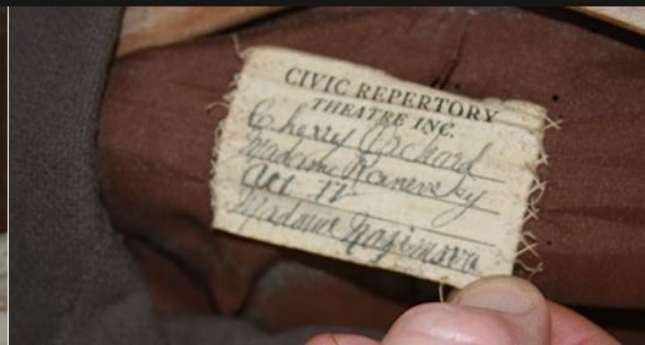 CIVIC REPERTORY
THEATRE INC.
Cherry Orchard
Madame Ranevsky
Act IV
Madame Nazimova